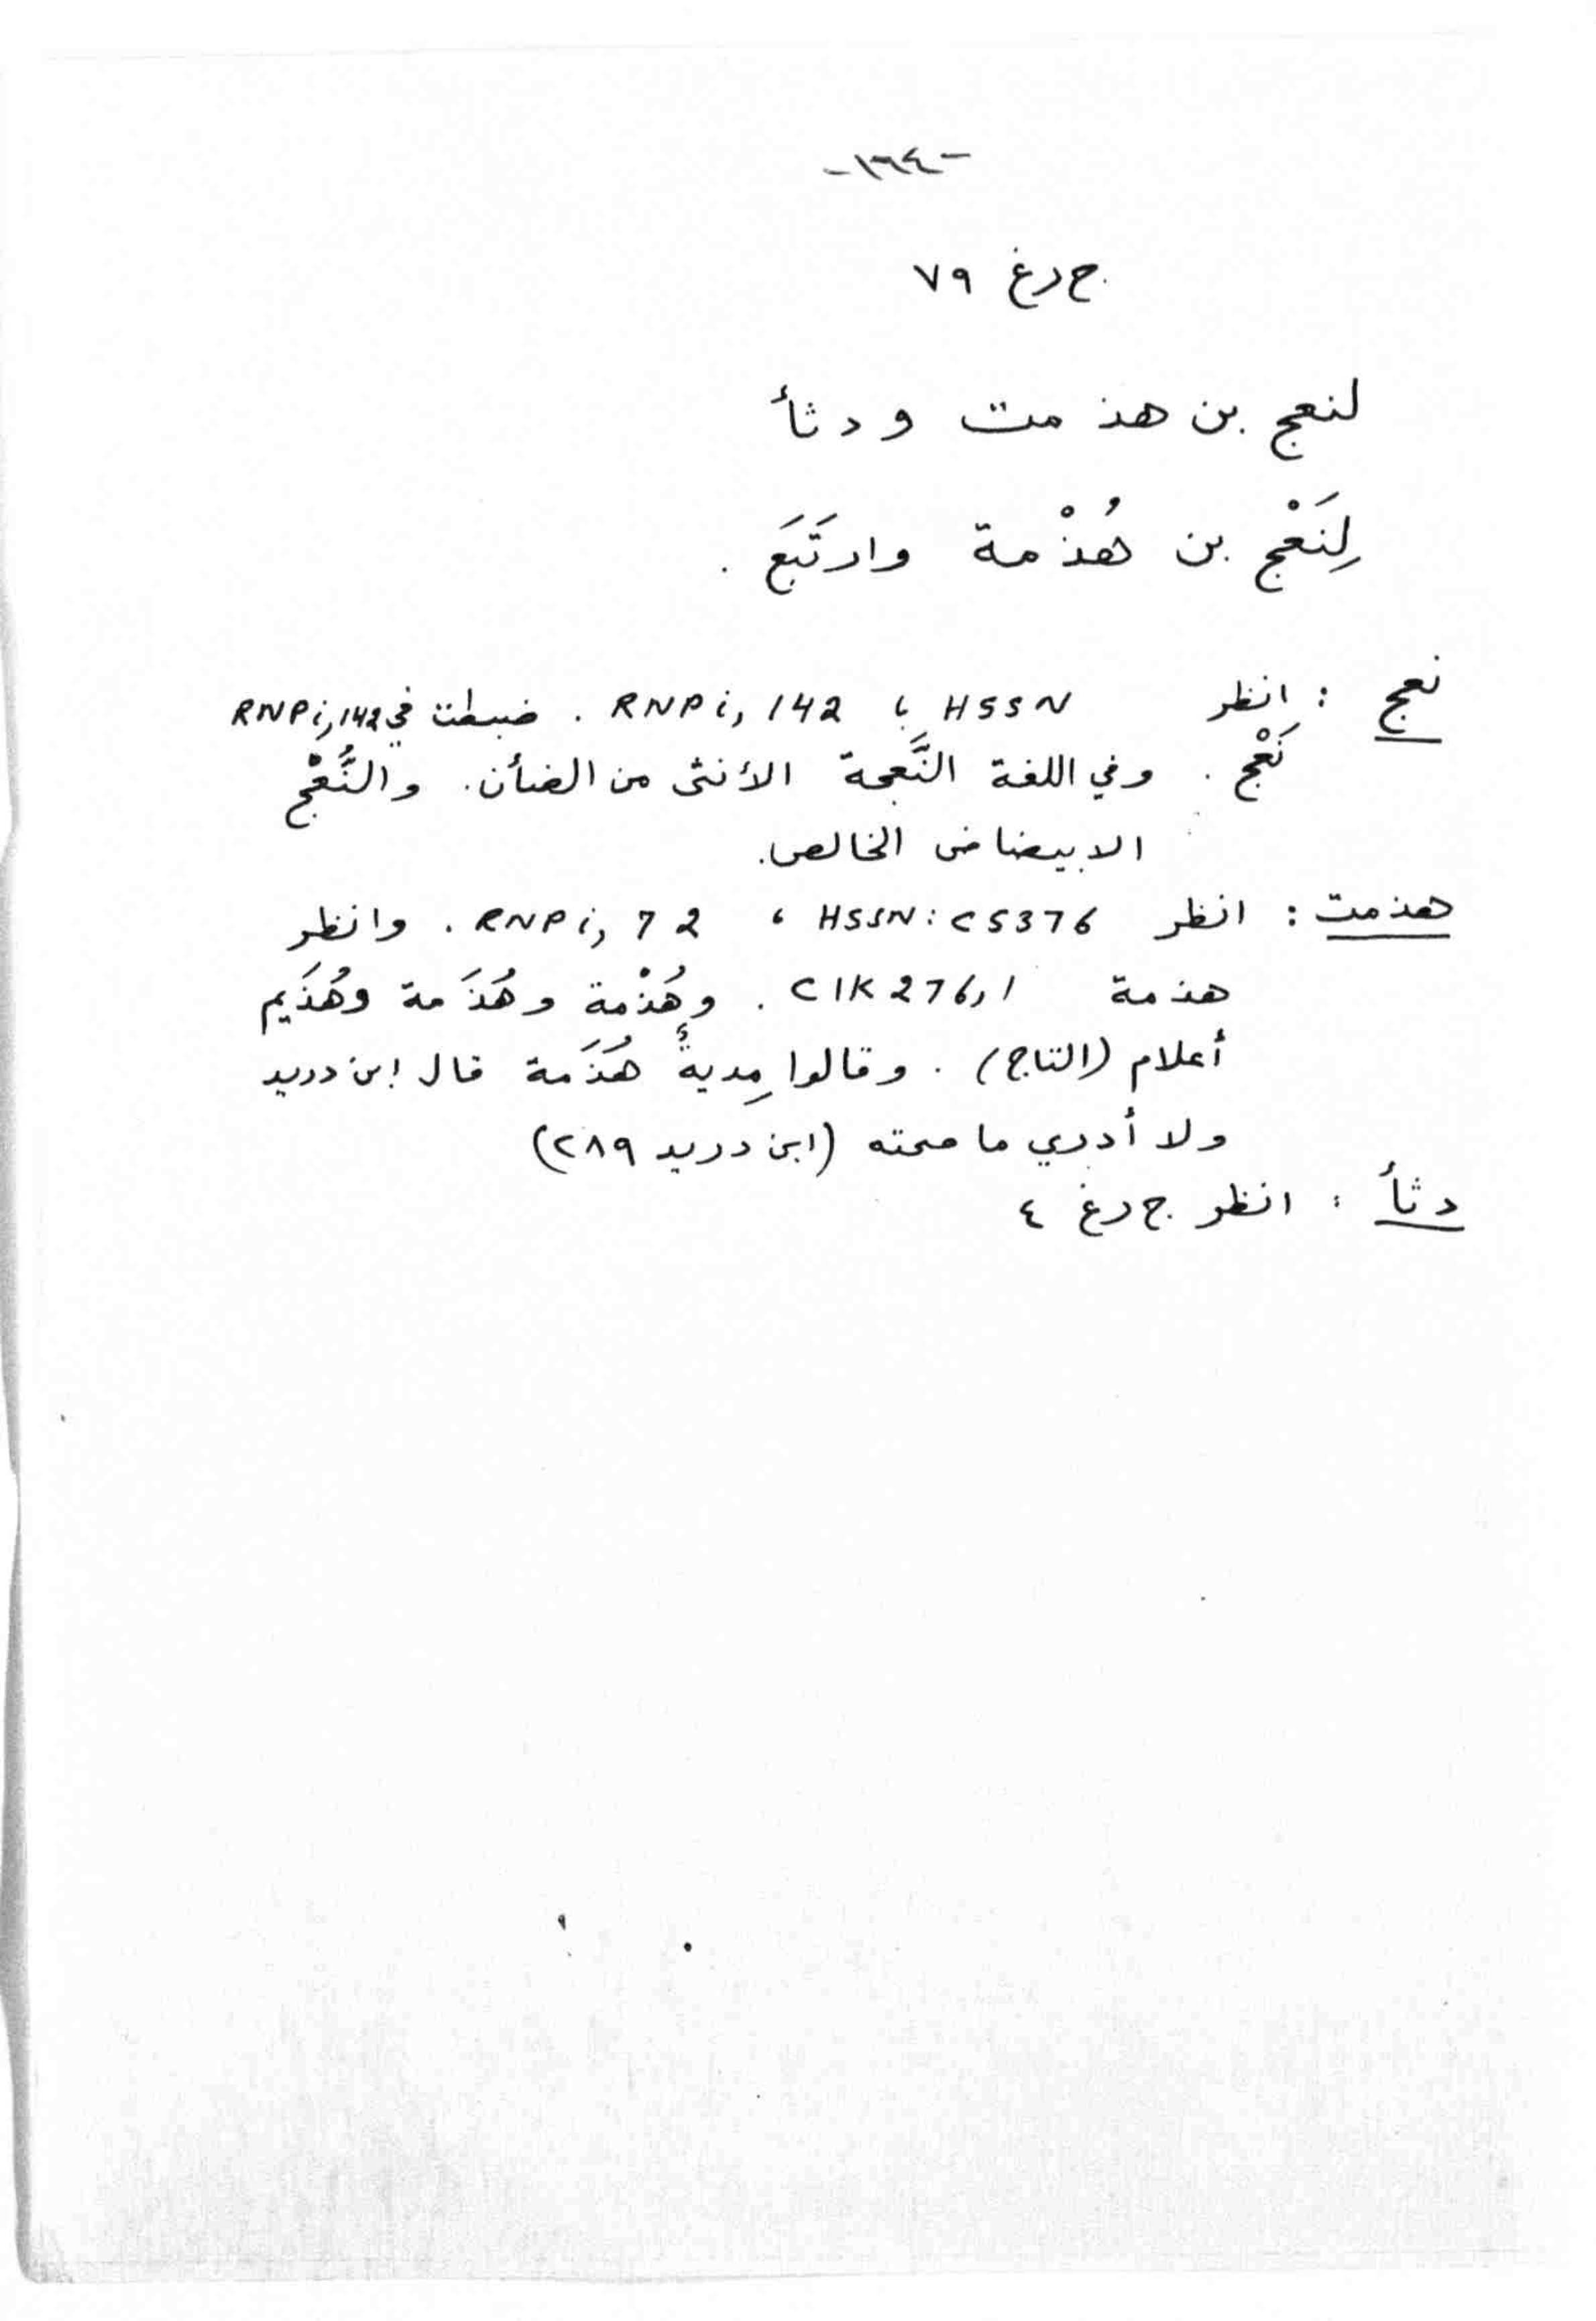 -١٦٤-
ج رغ ٧٩
لنعج بن هذ مت ودثأ
لِنَعْج بن هُذْمة وارتَبَع .
نعج : انظر HSSN ، RNP i, 142 . ضبطت في RNP i, 142
نَعْج . وفي اللغة النَّعجة الأنثى من الضأن. والنَّعْج
الابيضاض الخالص.
هذمت : انظر HSSN: C5376 ، RNP i, 72 . وانظر
هذمة CIK 276,1 . وهُذْمة وهُذَمة وهُذَيم
أعلام (التاج) . وقالوا مِديةٌ هُذَمة قال ابن دريد
ولا أدري ما صحته (ابن دريد ٢٨٩)
دثأ : انظر ج رغ ٤